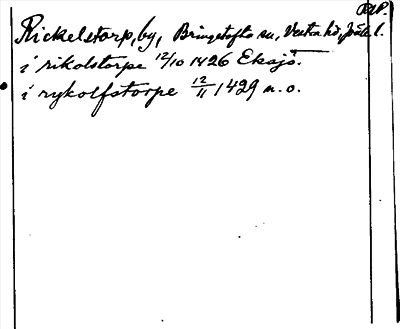 P.A.P.
Rickelstorp, by, Bringetofta sn, Västra hd, Jönk. l.
i rikolstorpe 12/10 1426 Eksjö.
i rykolfstorpe 12/11 1429 n.o.